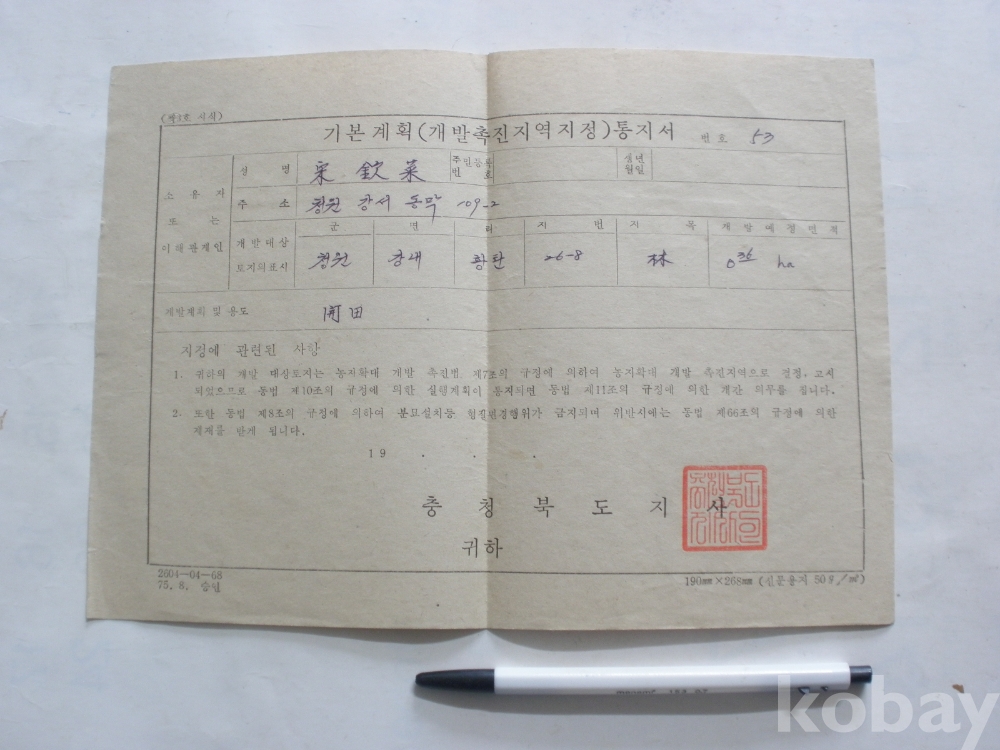 (제1호 서식)
기본계획(개발촉진지역지정)통지서 번호 53
성 명 宋 欽 菜 주민등록번호 생년월일
소유자 또는 이해관계인
주 소 청원 강서 동막 109-2
개발대상 토지의표시
군 면 리 지 번 지 목 개발예정면적
청원 강내 황탄 26-8 林 0.36 ha
개발계획 및 용도 開田
지정에 관련된 사항
1. 귀하의 개발 대상토지는 농지확대 개발 촉진법, 제7조의 규정에 의하여 농지확대 개발 촉진지역으로 결정, 고시
되었으므로 동법 제10조의 규정에 의한 실행계획이 통지되면 동법 제11조의 규정에 의한 개간 의무를 집니다.
2. 또한 동법 제8조의 규정에 의하여 분묘설치등 형질변경행위가 금지되며 위반시에는 동법 제66조의 규정에 의한
제재를 받게 됩니다.
19 . . .
충 청 북 도 지 사
귀하
2604—04—68
75. 8. 승인
190mm×268mm (신문용지 50g/㎡)
kobay